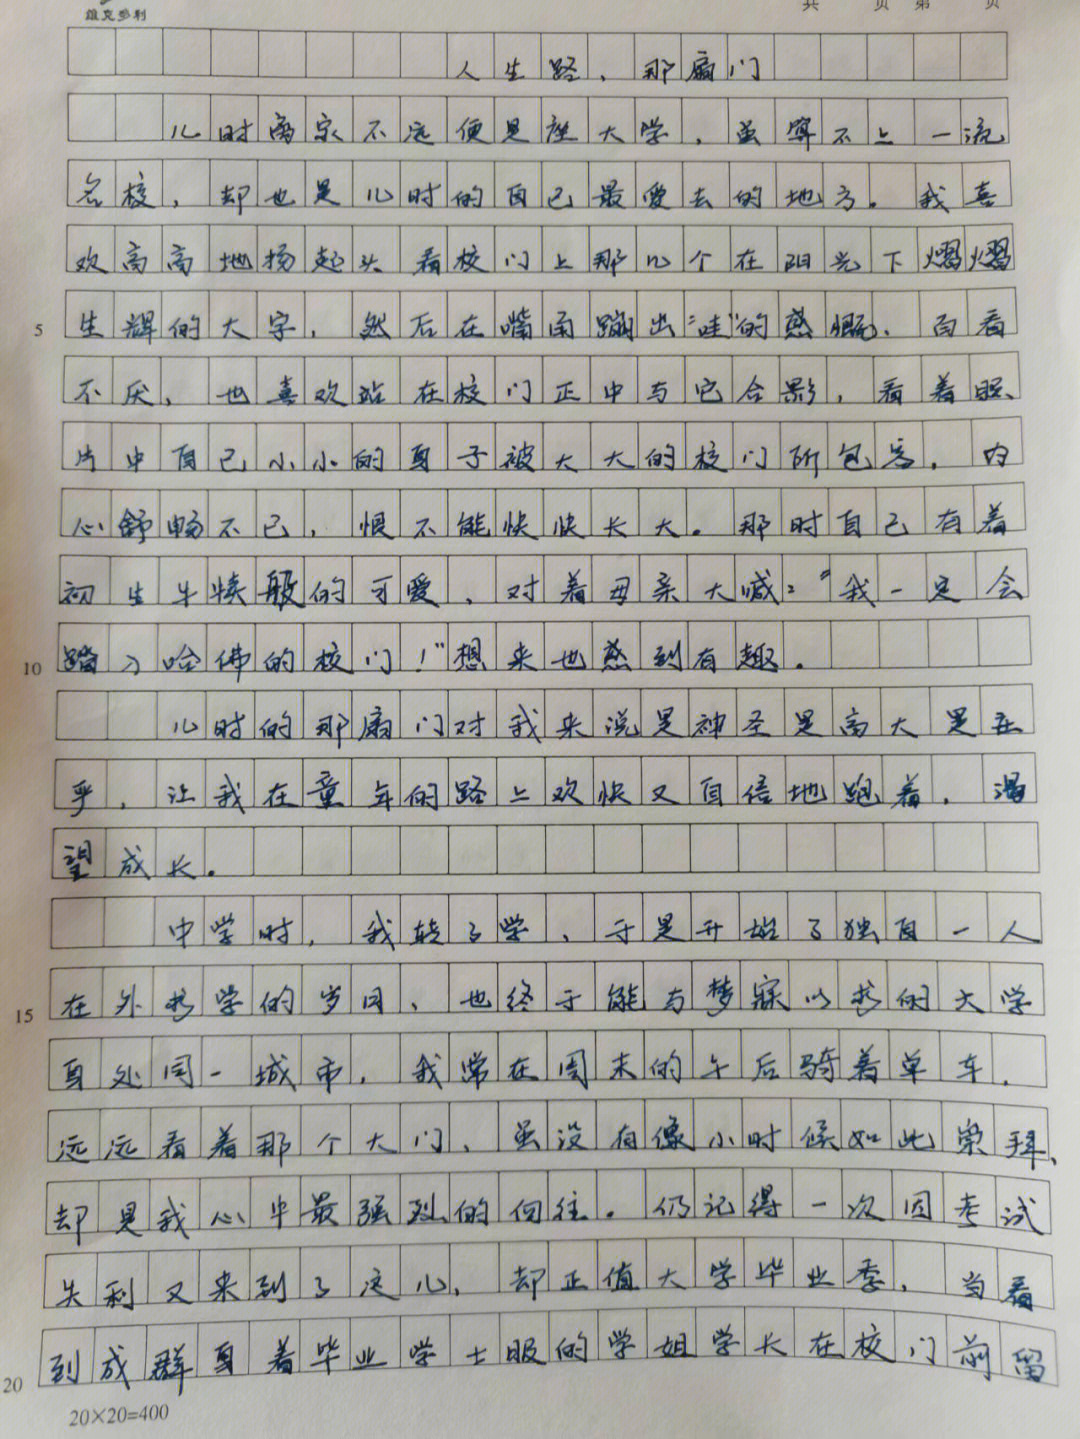 维克多利
共 页 第 页
人生路，那扇门
儿时离家不远便是座大学，虽算不上一流
名校，却也是儿时的自己最爱去的地方。我喜
欢高高地扬起头看校门上那几个在阳光下熠熠
生辉的大字，然后在嘴角蹦出“哇”的感慨，百看
5
不厌，也喜欢站在校门正中与它合影，看着照
片中自己小小的身子被大大的校门所包容，内
心舒畅不已，恨不能快快长大。那时自己有着
初生牛犊般的可爱，对着母亲大喊：“我一定会
踏入哈佛的校门！”想来也感到有趣。
10
儿时的那扇门对我来说是神圣是高大是在
乎，让我在童年的路上欢快又自信地跑着，渴
望成长。
中学时，我转了学，于是开始了独自一人
在外求学的岁月，也终于能与梦寐以求的大学
15
身处同一城市，我常在周末的午后骑着单车，
远远看着那个大门，虽没有像小时候如此崇拜，
却是我心中最强烈的向往。仍记得一次因考试
失利又来到了这儿，却正值大学毕业季，当看
到成群身着毕业学士服的学姐学长在校门前留
20
20×20=400